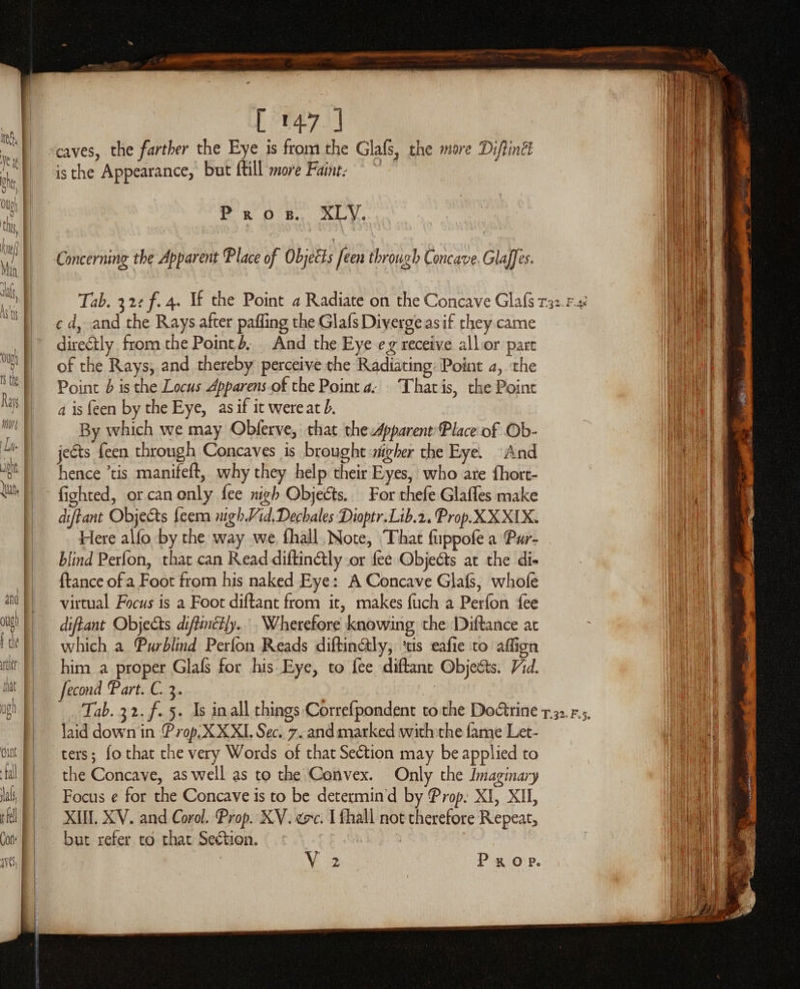 [ 147 ]
caves, the farther the Eye is from the Glaſs, the more Diſtinct
is the Appearance, but ſtill more Faint.
PROB. XLV.
Concerning the Apparent Place of Objects ſeen through Concave Glaſſes.
Tab. 32. f. 4. If the Point a Radiate on the Concave Glaſs T.32. F.4.
c d, and the Rays after paſſing the Glaſs Diverge as if they came
directly from the Point b. And the Eye e g receive all or part
of the Rays, and thereby perceive the Radiating Point a, the
Point b is the Locus Apparens of the Point a. That is, the Point
a is ſeen by the Eye, as if it were at b.
By which we may Obſerve, that the Apparent Place of Ob-
jects ſeen through Concaves is brought nigher the Eye. And
hence 'tis manifeſt, why they help their Eyes, who are ſhort-
ſighted, or can only ſee nigh Objects. For theſe Glaſſes make
diſtant Objects ſeem nigh. Vid. Dechales Dioptr. Lib. 2. Prop. XXXIX.
Here alſo by the way we ſhall Note, That ſuppoſe a Pur-
blind Perſon, that can Read diſtinctly or ſee Objects at the di-
ſtance of a Foot from his naked Eye: A Concave Glaſs, whoſe
virtual Focus is a Foot diſtant from it, makes ſuch a Perſon ſee
diſtant Objects diſtinctly. Wherefore knowing the Diſtance at
which a Purblind Perſon Reads diſtinctly, 'tis eaſie to aſſign
him a proper Glaſs for his Eye, to ſee diſtant Objects. Vid.
ſecond Part. C. 3.
Tab. 32. f. 5. Is in all things Correſpondent to the Doctrine T.32. F.5.
laid down in Prop. XXXI. Sec. 7. and marked with the ſame Let-
ters; ſo that the very Words of that Section may be applied to
the Concave, as well as to the Convex. Only the Imaginary
Focus e for the Concave is to be determin'd by Prop. XI, XII,
XIII. XV. and Corol. Prop. XV. &c. I ſhall not therefore Repeat,
but refer to that Section.
V 2 PROP.